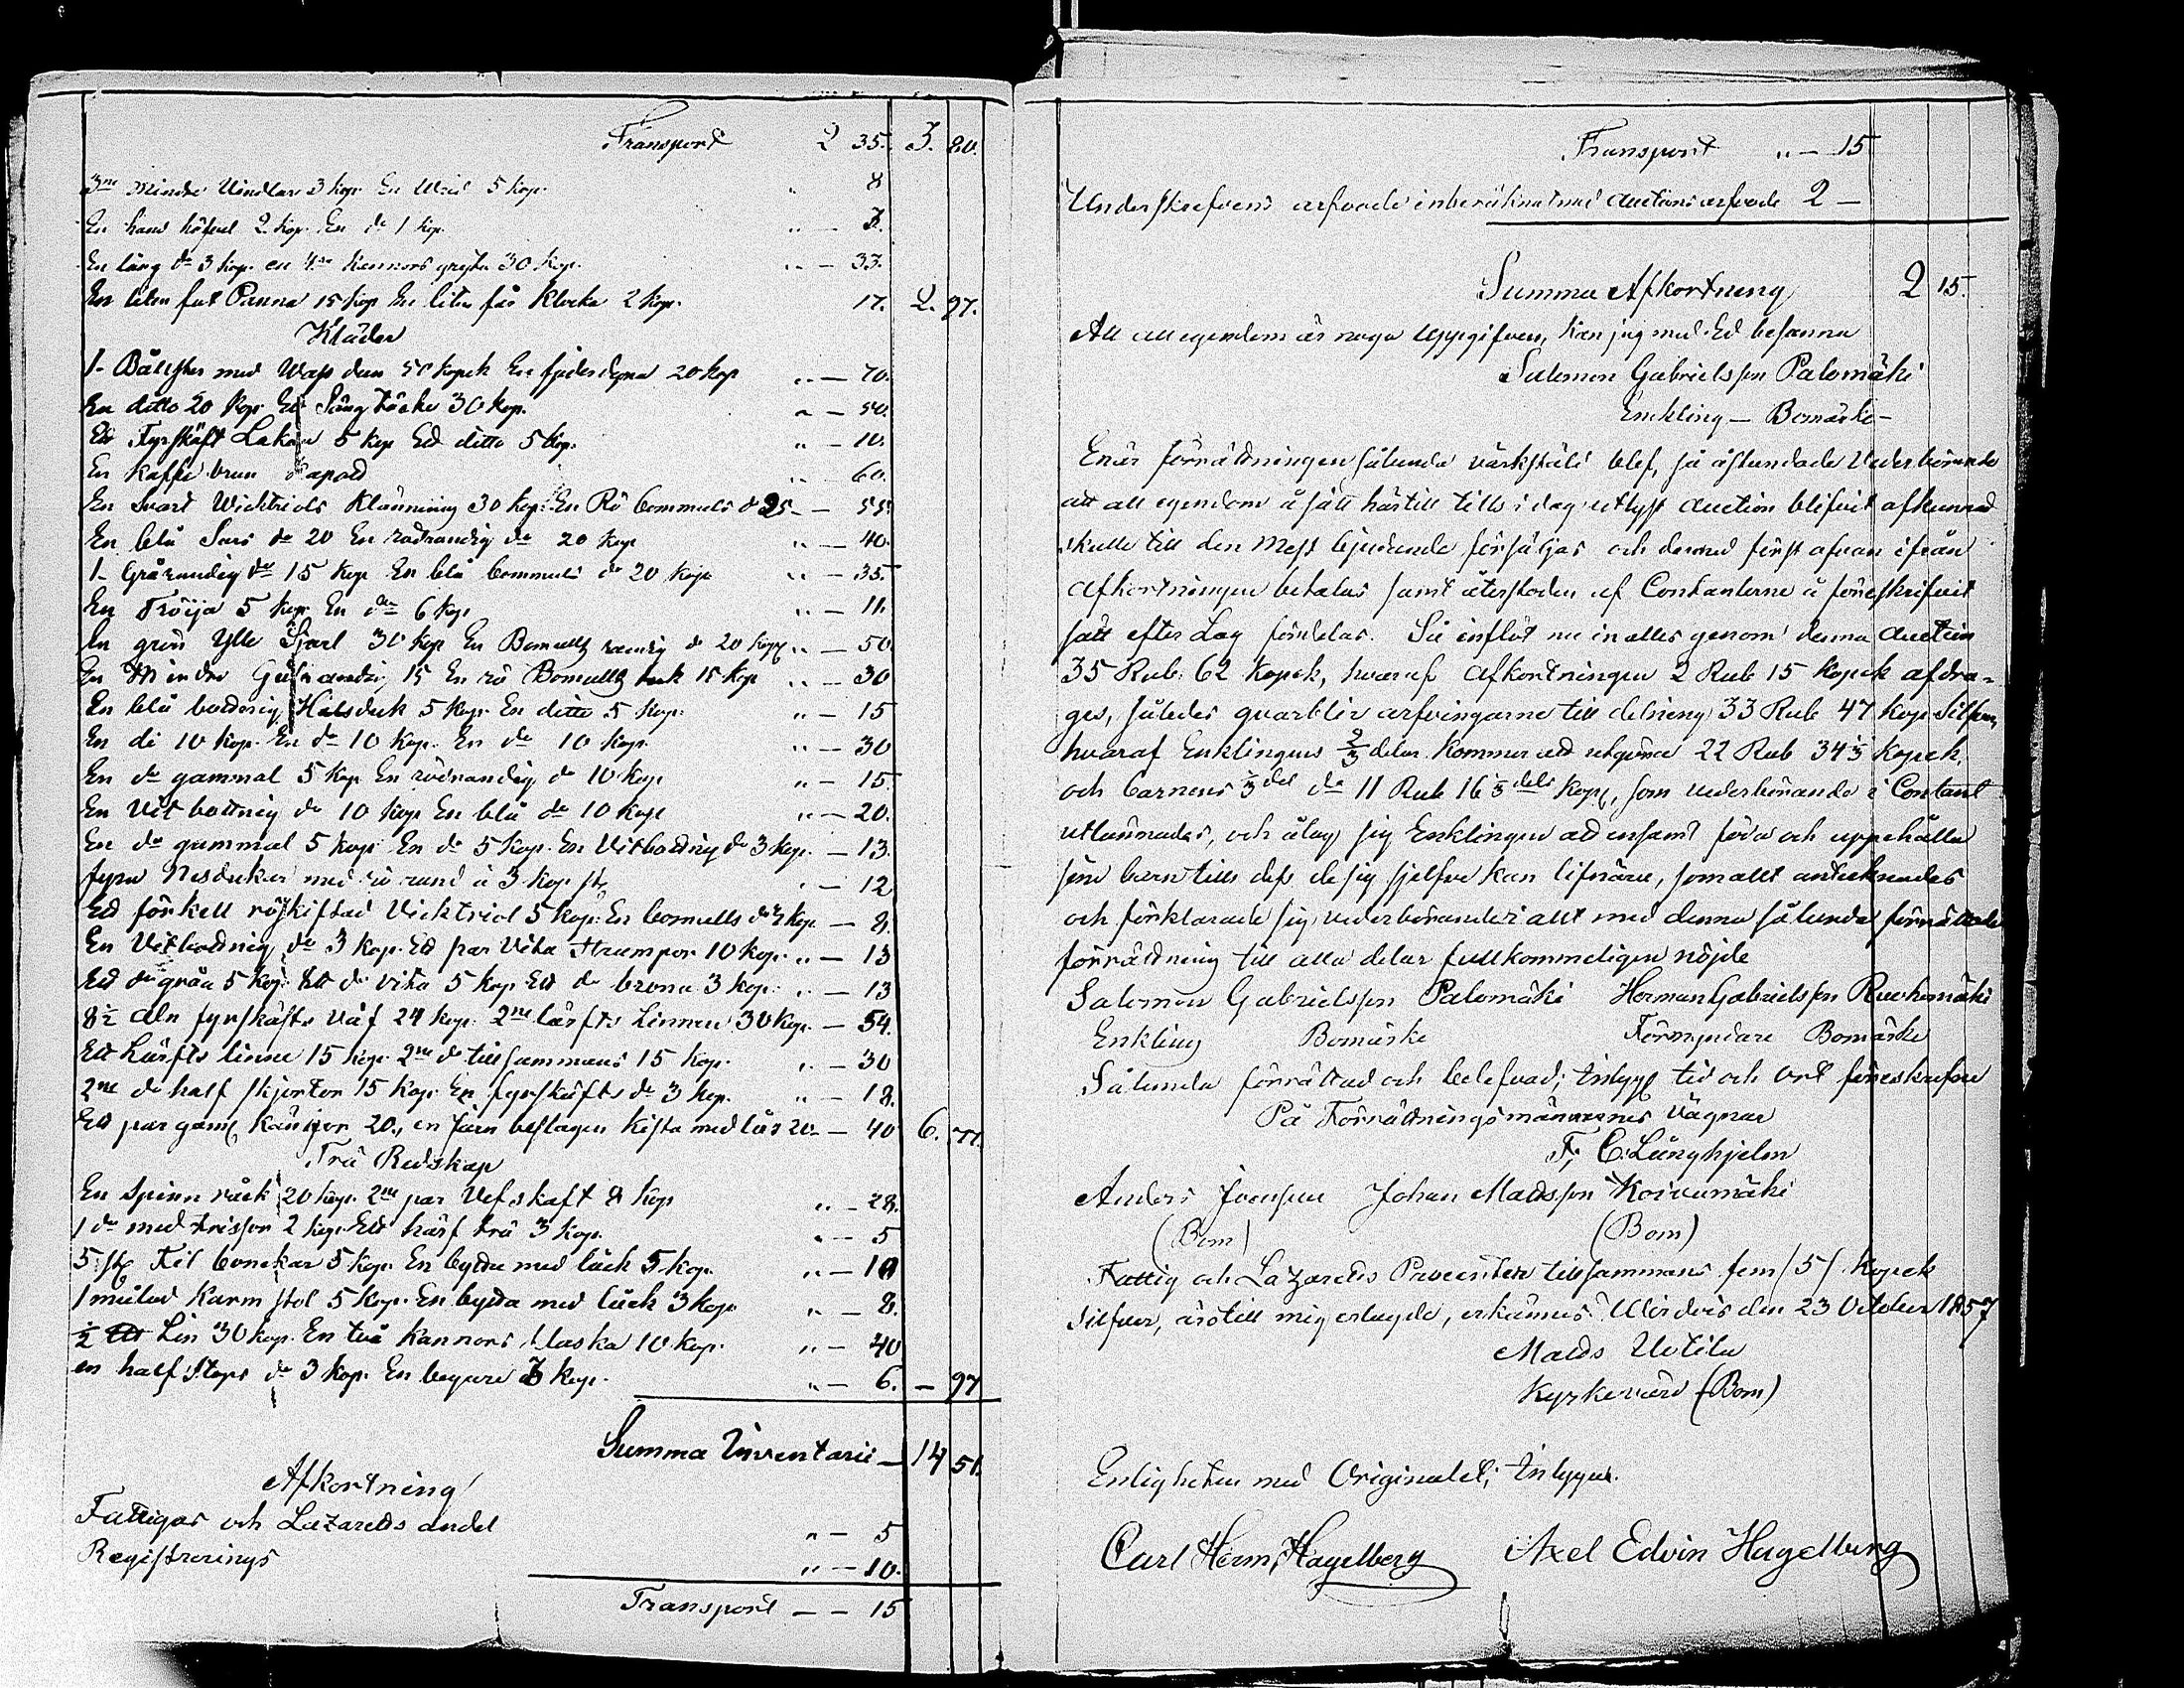 Transport 2 35. 3. 80.
3ne Mindre Vindlar 3 kop. En 5 kop. " 8
En hand 2 kop. En do 1 kop. " — 3.
En lång do 3 kop. en 4ra kannors gryta 30 kop. " — 33.
En liten fot Panna 15 kop En liten får klocka 2 kop. 17. 2. 97.
Kläder
1- Bålster med dun 50 kopek En fjäderdyna 20 kop " — 70.
En ditto 20 kop. Ett Säng täcke 30 kop. " — 50.
Ett Fyrskäft Lakan 5 kop Ett ditto 5 kop. " — 10.
En kaffe brun " 60.
En Svart Wicktriols Klänning 30 kop. En Rö bommuls do 25 — 55.
En blå do 20 En rödrandig do 20 kop " — 40.
1- Grårandig do 15 kop En blå bommuls do 20 kop " — 35.
En Tröija 5 kop En do 6 kop " — 11.
En grön Ylle Sjarl 30 kop En Bomulls randig do 20 kop " — 50.
En Mindre Gulrandig 15 En rö Bomulls duk 15 kop " — 30
En blå bottnig Halsduk 5 kop. En ditto 5 kop: " — 15
En di 10 kop. En do 10 kop. En do 10 kop. " — 30
En do gammal 5 kop En rödrandig do 10 kop " — 15.
En Vit bottnig do 10 kop En blå do 10 kop " — 20.
En do gammal 5 kop En do 5 kop. En Vitbottnig do 3 kop. — 13.
fyra Nesdukar med rö rand à 3 kop st " — 12
Ett förkell Vicktriol 5 kop: En bomulls do 3 kop — 8.
En Vitbottnig do 3 kop. Ett par Vita Strumpor 10 kop. " — 13
Ett do gråa 5 kop. Ett do vita 5 kop Ett do bruna 3 kop. " — 13
8½ aln fyrskäfts väf 24 kop. 2ne lärfts Linnen 30 kop. — 54.
Ett Lärfts linne 15 kop. 2ne do tillsammans 15 kop. " — 30
2ne do half skjortor 15 kop. En fyrskäfts do 3 kop. " — 18.
Ett par gam kängor 20., en järn beslagen kista med lås 20 — 40 6. 77.
Trä Redskap
En Spinn råck 20 kop. 2ne par Vefskaft 8 kop " — 28.
1 do med trissor 2 kop. Ett härf trä 3 kop. " — 5
5 st Fil bonckar 5 kop. En bytta med låck 5 kop. " — 10
1 målad Karm stol 5 kop. En bytta med låck 3 kop. " — 8.
½ Lin 30 kop. En två kannors flaska 10 kop. " — 40
en half Stops do 3 kop. En begare 3 kop. " — 6. — 97
Summa Inventarii — 14 51.
Afkortning
Fattigas och Lazaretts andel " — 5
Registrerings " — 10.
Transport — — 15
Transport " — 15
Underskrefvens arfvode inberäknat med auctions arfvode 2 —
Summa Afkortning 2 15.
Att all egendom är noga uppgifven, kan jag med Ed besanna
Salomon Gabrielsson Palomäki
Enkling — Bomärke —
Enär förrättningen sålunda värkstäld blef, så åstundade Vederbörande
att all egendom å sätt härtill tills i dag utlyst auction blifvit afkunnad
skulle till den mest bjudande försäljas och dermed först afvan ifrån
afkortningen betalas samt återstoden af Contanterne å föreskrifvit
sätt efter Lag fördelas. Så inflöt nu in alles genom denna auction
35 Rub. 62 kopek, hvaraf afkortningen 2 Rub 15 kopek afdra-
ges, således qvarblir arfvingarne till delning 33 Rub 47 kop Silfver,
hvaraf Enklingens ⅔ delar kommer att utgöra 22 Rub 34⅓ kopek,
och barnens ⅓ del do 11 Rub 16⅓ dels kop, som vederbörande i Contant
utlämnades, och ålag sig Enklingen att ensamt föda och uppehålla
sine barn tills dess de sig sjelfve kan lifnära, som allt antecknades
och förklarade sig vederbörande i allt med denna sålunda förrättade
förrättning till alla delar fullkommeligen nöjde
Salomon Gabrielsson Palomäki Herman Gabrielsson Ruohomäki
Enkling Bomärke Förmyndare Bomärke
Sålunda förrättad och belefvad; intyga tid och Ort föreskrefne
På Förrättningsmännernes Vägnar
F. C. Långhjelm
Anders Johan Mattsson Koivumäki
(Bom) (Bom)
Fattig och Lazaretts Procenten tillsammans fem /5/ Kopek
Silfver, äro till mig erlagde, erkännes. den 23 October 1857
Matts Uotila
Kyrkovärd (Bom)
Enligheten med Originalet; Intygar.
Carl Herm, Hagelberg Axel Edvin Hagelberg